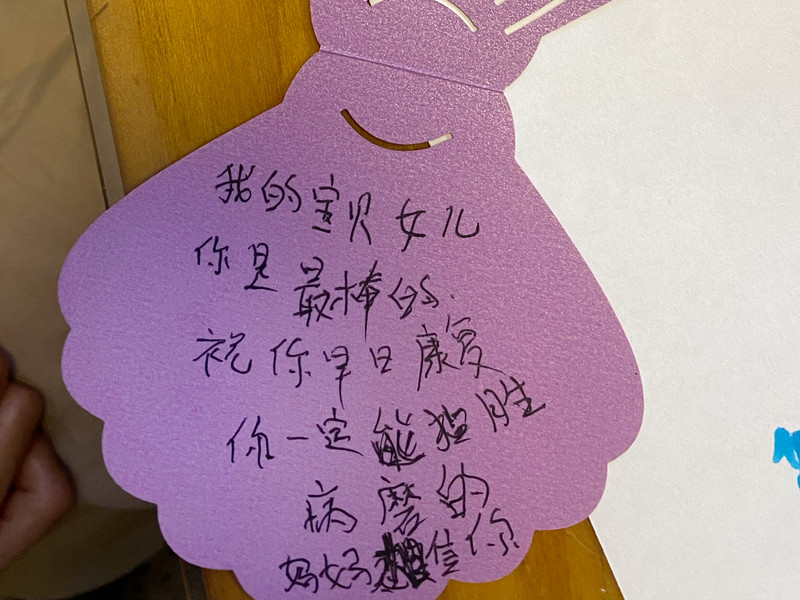 我的宝贝女儿
你是最棒的.
祝你早日康复
你一定能战胜
病磨的
妈妈相信你